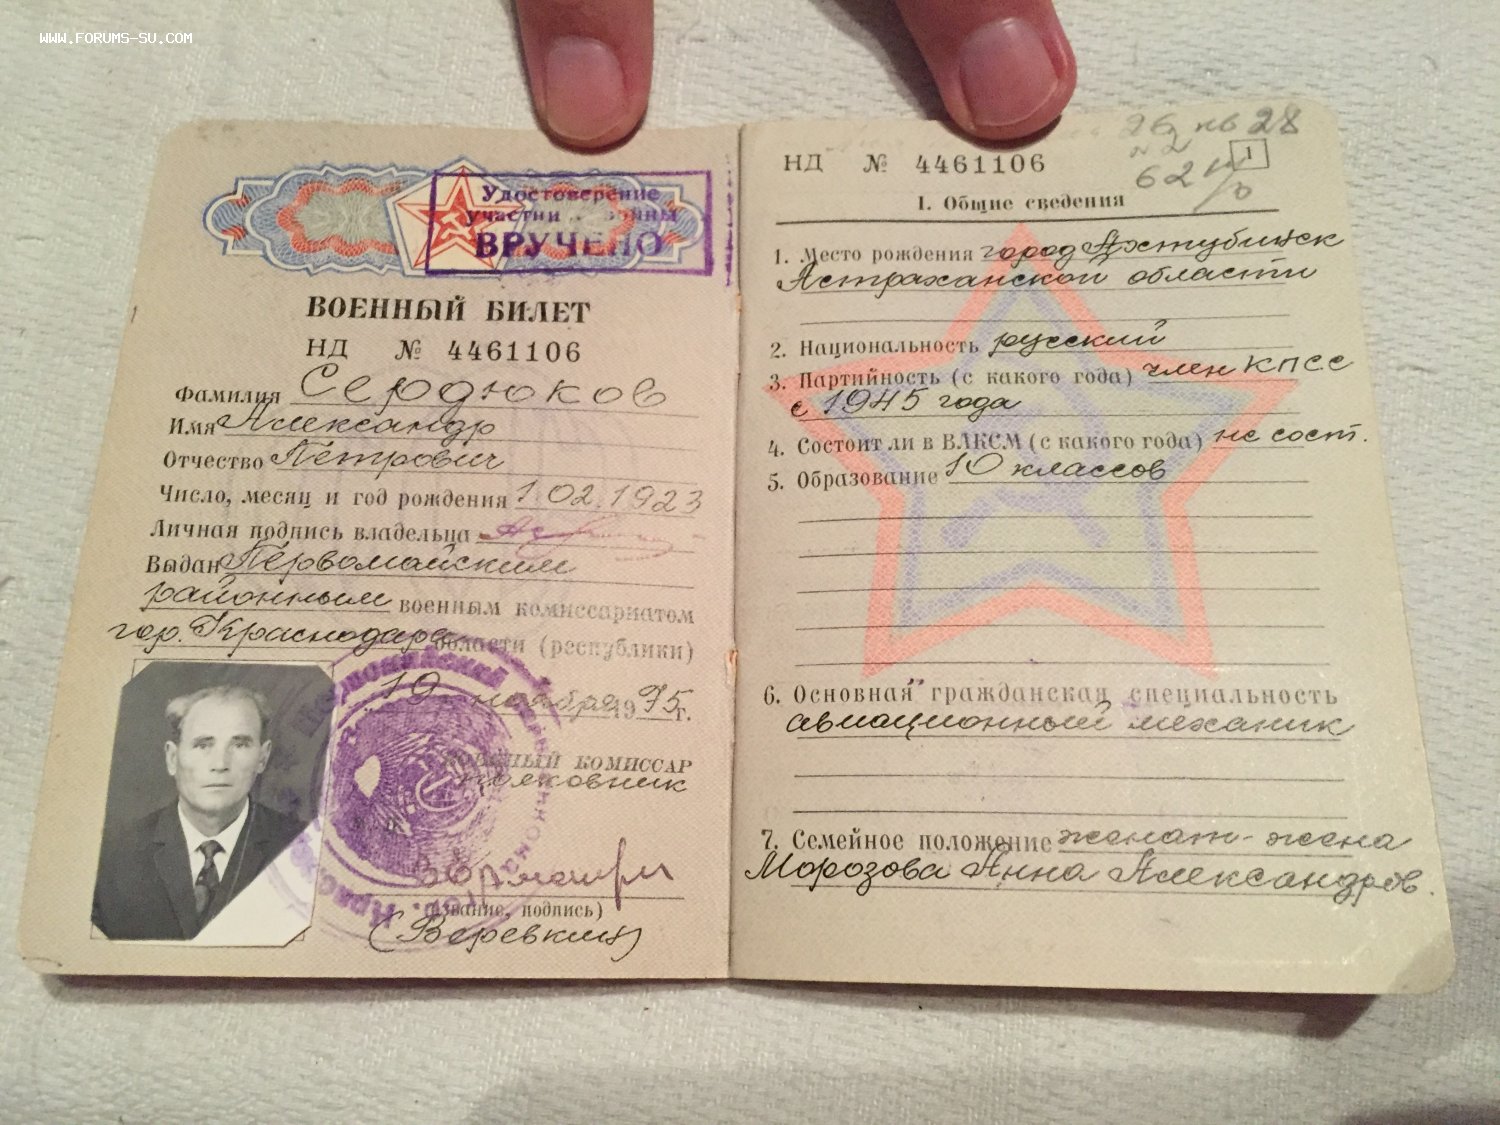 WWW.FORUMS-SU.COM
Удостоверение
участни войны
ВРУЧЕНО
ВОЕННЫЙ БИЛЕТ
НД № 4461106
Фамилия Сердюков
Имя Александр
Отчество Петрович
Число, месяц и год рождения 1.02.1923
Личная подпись владельца
Выдан Первомайским
районным военным комиссариатом
гор. Краснодара области (республики)
19 ноября 1975 г.
ВОЕННЫЙ КОМИССАР
полковник
(звание, подпись)
(Веревкин)
НД № 4461106
26 кв 28
№2
62
1
I. Общие сведения
1. Место рождения город Ахтубинск
Астраханской области
2. Национальность русский
3. Партийность (с какого года) член КПСС
с 1945 года
4. Состоит ли в ВЛКСМ (с какого года) не сост.
5. Образование 10 классов
6. Основная гражданская специальность
авиационный механик
7. Семейное положение женат - жена
Морозова Анна Александров.